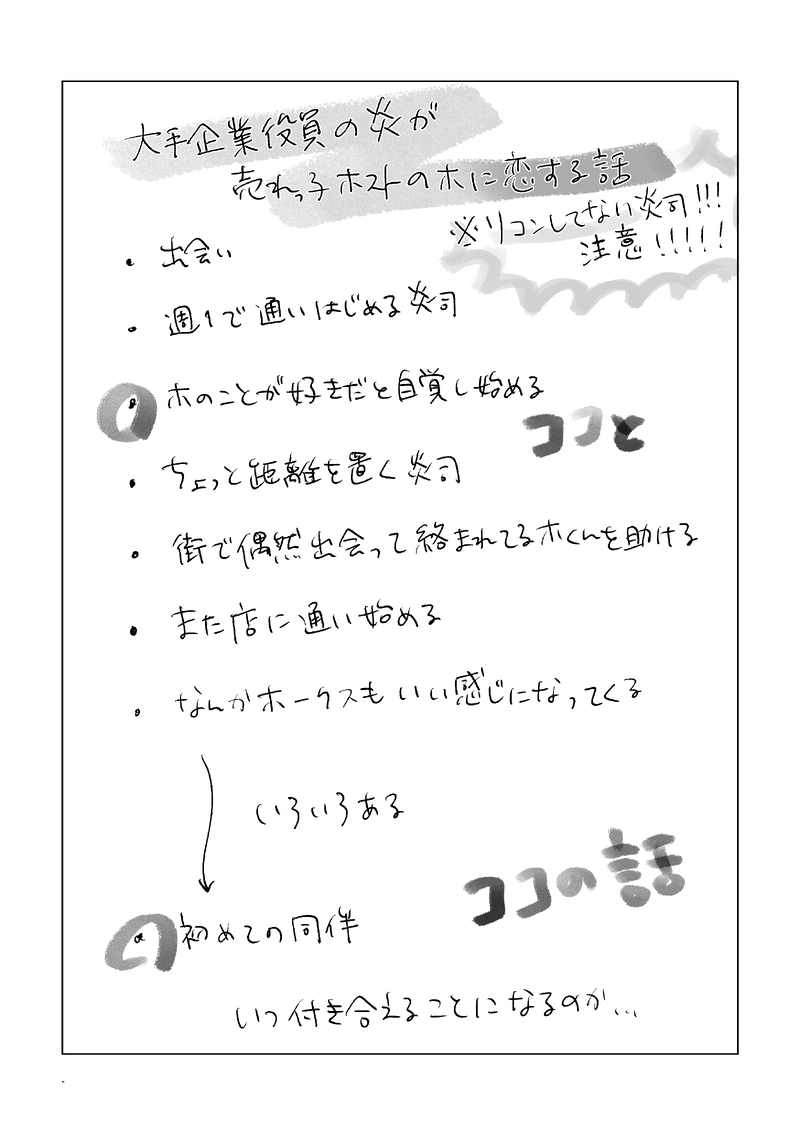 大手企業役員の炎が
売れっ子ホストのホに恋する話
※リコンしてない炎司!!!
注意!!!!!
・出会い
・週1で通いはじめる炎司
・ホのことが好きだと自覚し始める
ココと
・ちょっと距離を置く炎司
・街で偶然出会って絡まれてるホくんを助ける
・また店に通い始める
・なんかホークスもいい感じになってくる
いろいろある
ココの話
・初めての同伴
いつ付き合えることになるのか…